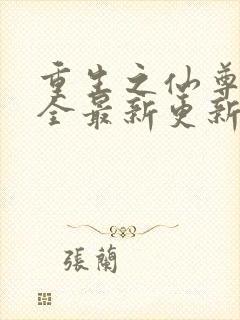 重生之仙尊
全最新更新
張蘭